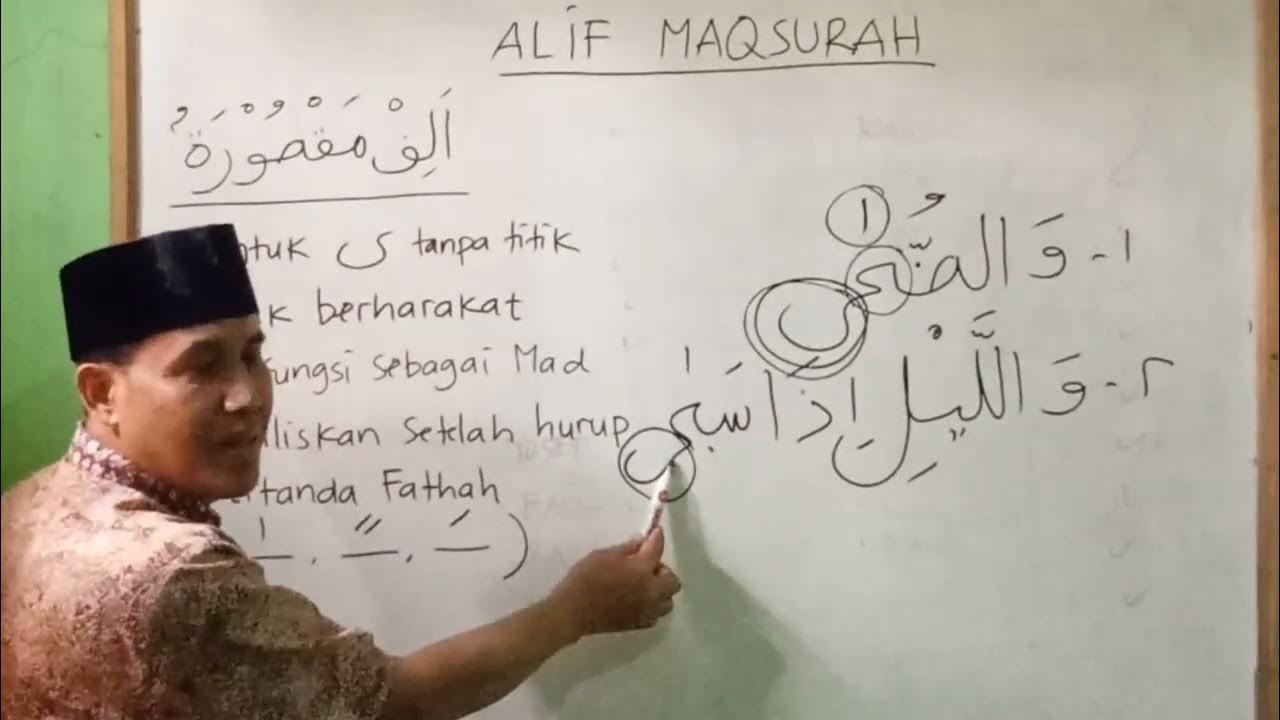 ALIF MAQSURAH
اَلِفْ مَقْصُوْرَةٌ
ى tanpa titik
berharakat
fungsi sebagai Mad
liskan setelah hurup
tanda Fathah
١
١- وَالضُّحٰى
٢- وَالَّيْلِ اِذَا سَجٰى